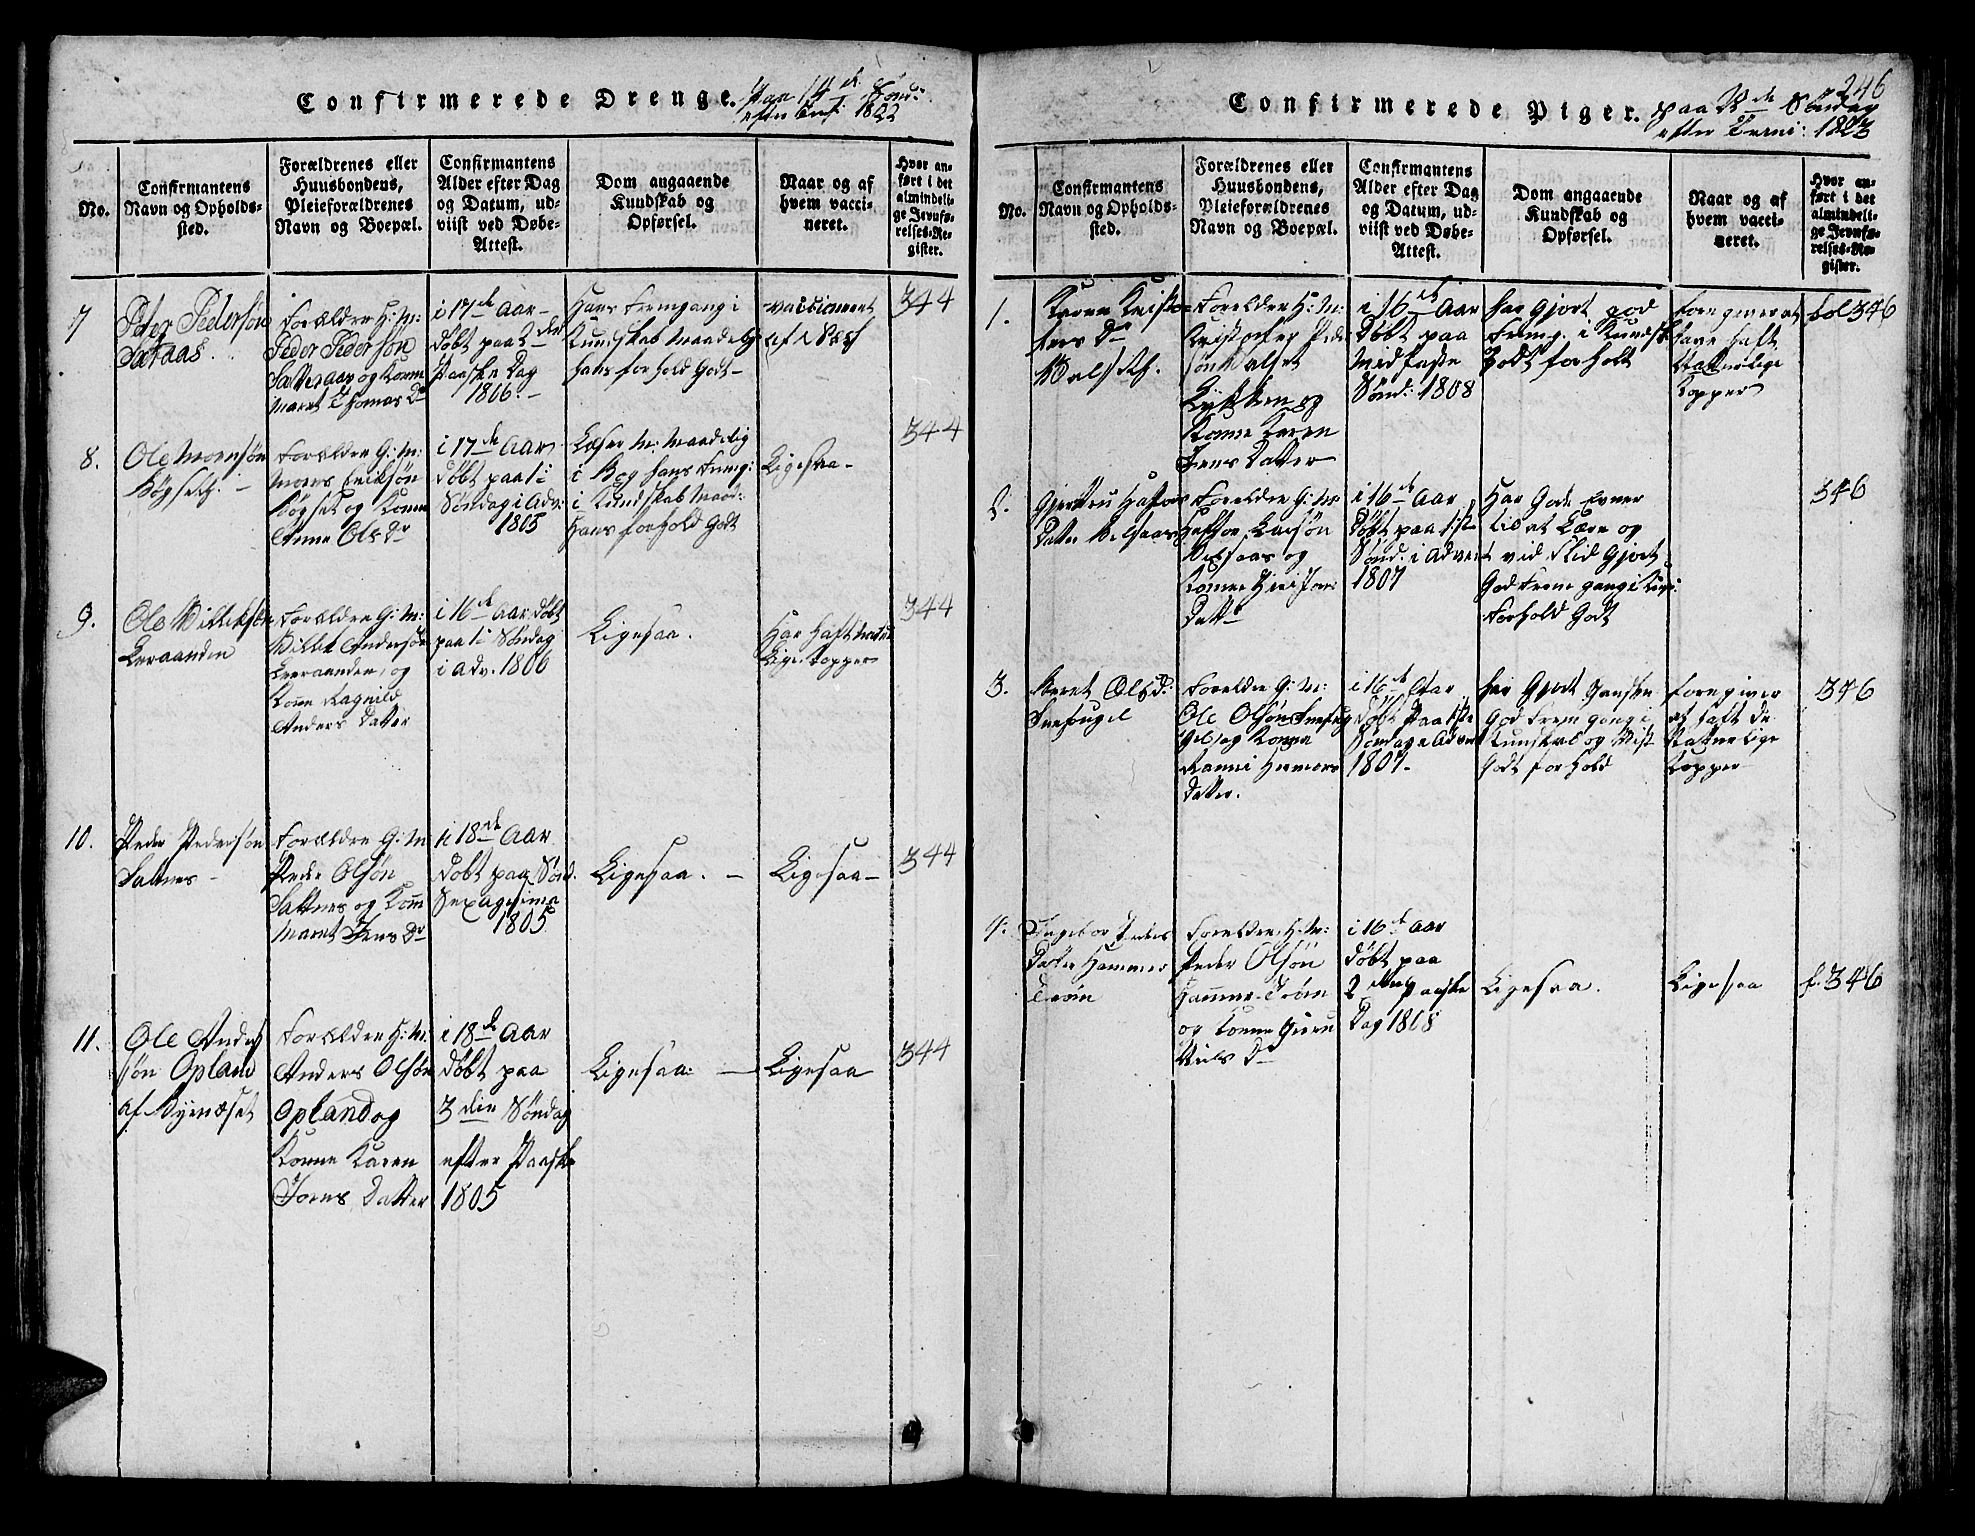 Confirmerede Drenge. Paa 14 de Sønd:
efter Trf: 1822
No.
Confirmantens
Navn og Opholds-
sted.
Forældrenes eller
Huusbondens,
Pleieforældrenes
Navn og Boepæl.
Confirmantens
Alder efter Dag
og Datum, ud-
viist ved Døbe-
Attest.
Dom angaaende
Kundskab og
Opførsel.
Naar og af
hvem vacci-
neret.
Hvor an-
ført i det
almindeli-
ge Jevnfø-
relses-Re-
gister.
7
Peder Pedersøn
Sætraas.
Forældre G: M:
Peder Pedersøn
Sætteraas og Kone
Maret Thomas Dr
i 17 de Aar
døbt paa 2 den
Paaske Dag
1806.
Hans Fremgang i
Kundskab Maadelig
hans forhold Godt
vaccioneret
344
8.
Ole Monsøn
Høgset
Forældre G: M:
Mons Eriksøn
Høgset og Kone
Anne Ols Dr
i 17 de Aar
døbt paa 1 i
Søndag i Adv:
1805
Læser M: Maadelig
i Bog hans Fremg:
i Kundskab Maad:
Hans forhold Godt
Ligesaa
344
9.
Ole
Leraanden
Forældre G: M:
Andersøn
Leraanden, og
Kone Ragnild
Anders Datter
i 16 de Aar døbt
paa 1 i Søndag
i Adv. 1806
Ligesaa.
Har Haft
Lige Kopper
344
10.
Peder Pedersøn
Saltnes
Forældre G: M
Peder Olsøn
Saltnes og Kone
Maret Jens Dr
i 18 de Aar
døbt paa Sønd.
Sexagesima
1805
Ligesaa.
Ligesaa
344
11.
Ole Anders
søn Opland
af Byenæset
Forældre H: M:
Anders Olsøn
Opland og
Kone Karen
Jons Datter
i 18 de Aar
døbt paa
3 die Søndag
efter Paaske
1805
Ligesaa:
Ligesaa
344
246
Confirmerede Piger. paa de Søndag
efter Terni: 1823
No.
Confirmantens
Navn og Opholds-
sted.
Forældrenes eller
Huusbondens,
Pleieforældrenes
Navn og Boepæl.
Confirmantens
Alder efter Dag
og Datum, ud-
viist ved Døbe-
Attest.
Dom angaaende
Kundskab og
Opførsel.
Naar og af
hvem vacci-
neret.
Hvor an-
ført i det
almindeli-
ge Jevnfø-
relses-Re-
gister.
1.
Karen Kristo-
fers Dr
Forældre H: M:
Kristopfer Peder
søn
Løkken og
Konne Karen
Jens Datter
i 16 de Aar
Døbt paa
Midfaste
Sønd: 1808
har Gjort god
Fremg. i Kundsk
Godt forholt
Foregiver at
have haft
Natturlige
Kopper
fol 346
2.
Gjertru Haftors
Datter
Forældre G: M:
Haftor Larsøn
og
Konne
Datter
i 16 de Aar
Døbt paa 1ste
Sønd: i Advent
1807
Har Gode Evner
til at Lære og
vid Flid Gjort
God Frem gang i
Forhold Godt
346
3.
Beret Ols D:
Snefugel
Forældre G: M:
Ole Olsøn Snefug
og Konen
Ranni
Datter.
i 16 de Aar
Døbt Paa 1ste
Søndag i Advent
1807
har Gjort Ganske
God Frem gang i
Kunskab og Vist
Godt forhold
foregiver
at haft de
Natturlige
Kopper
346
4.
Ingebor Peders
Datter Hammer
Trøen
Forældre, H: M:
Peder Olsøn
Hammer Trøen
og Konne Guru
Niels Dr
i 16 de Aar
Døbt paa
2 den Paaske
Dag 1808
Ligesaa.
Ligesaa
f. 346